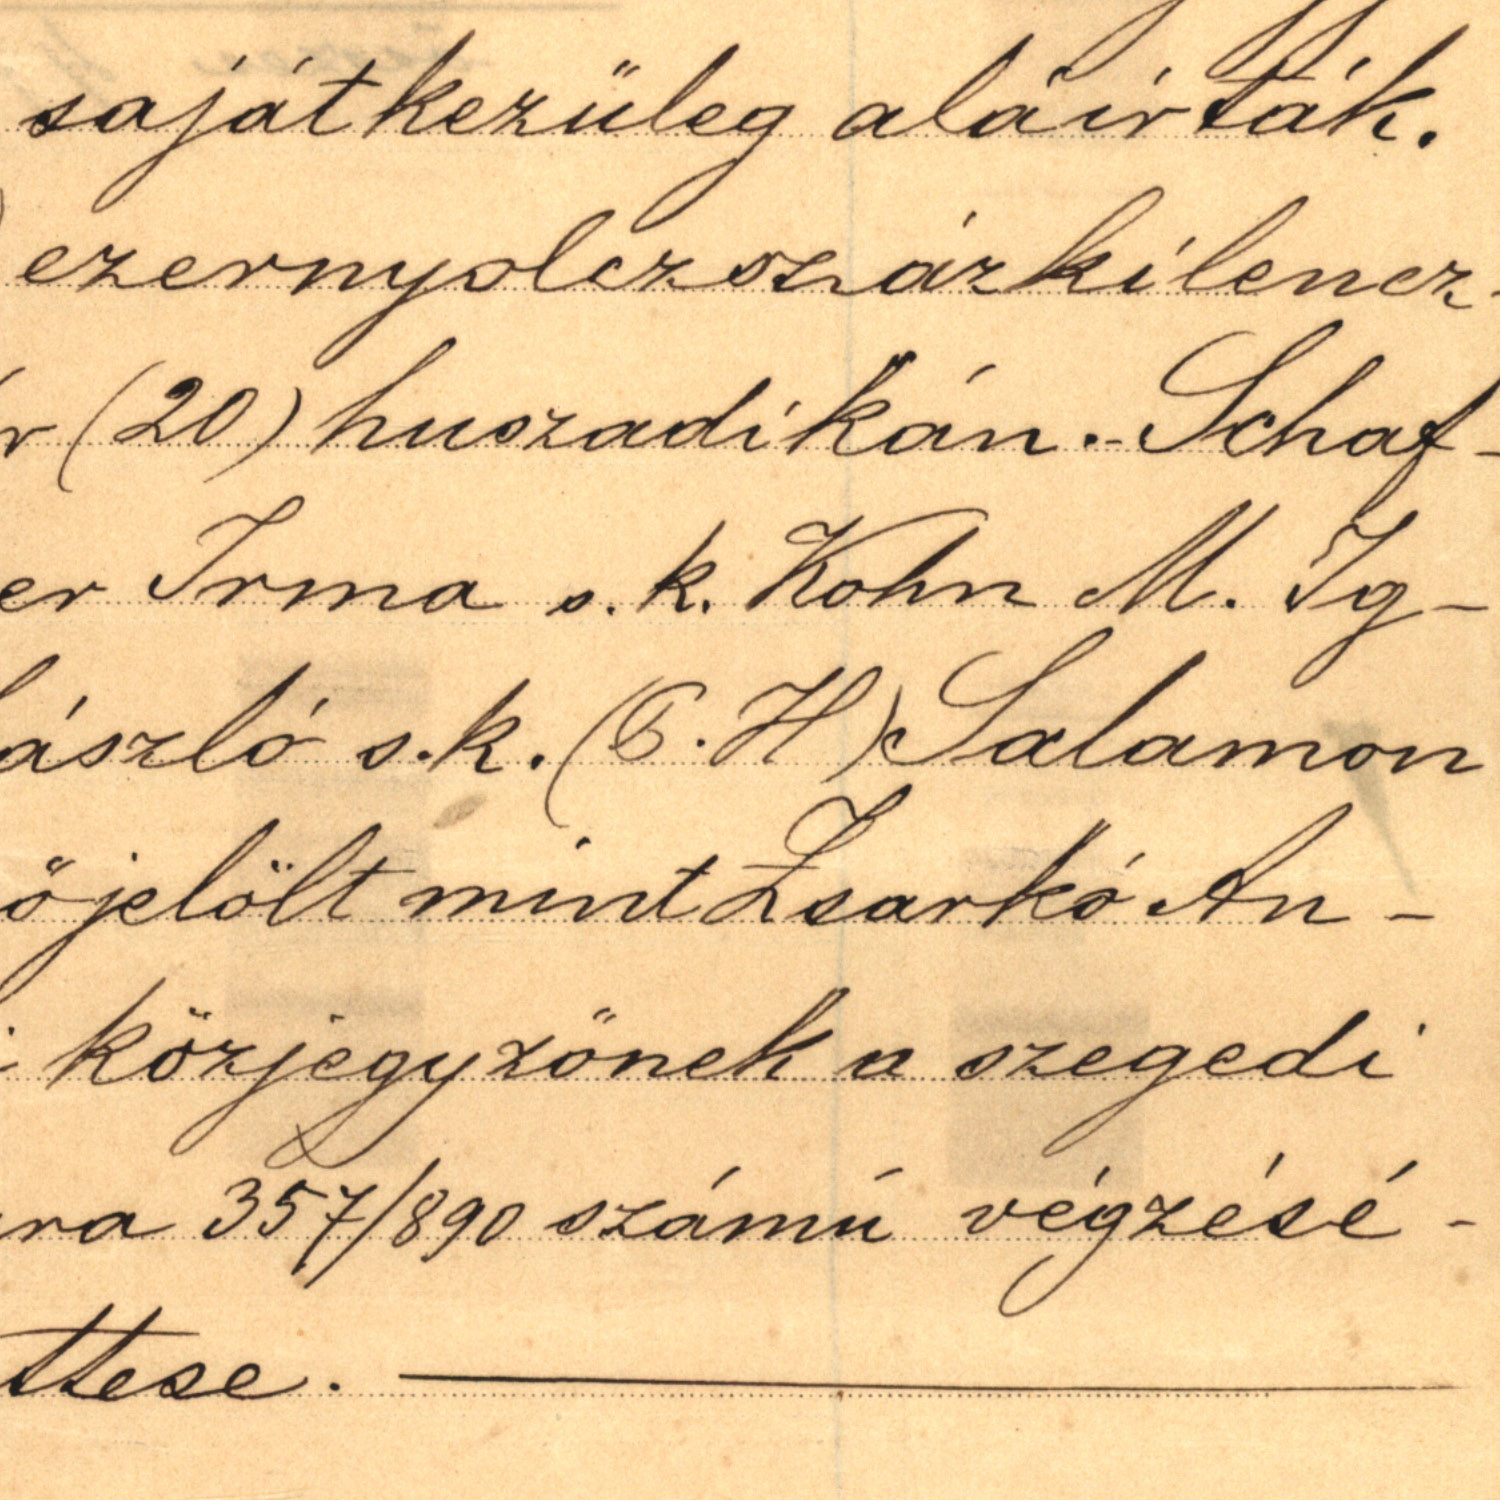 sajátkezüleg aláirták.
ezernyolczszázkilencz-
r (20) huszadikán.- Schaf-
er Irma s. k. Kohn M. Ig-
ászló s.k. (P. H) Salamon
őjelölt mint Zsarkó An-
i közjegyzőnek a szegedi
ra 357/890 számú végzésé-
ttese.